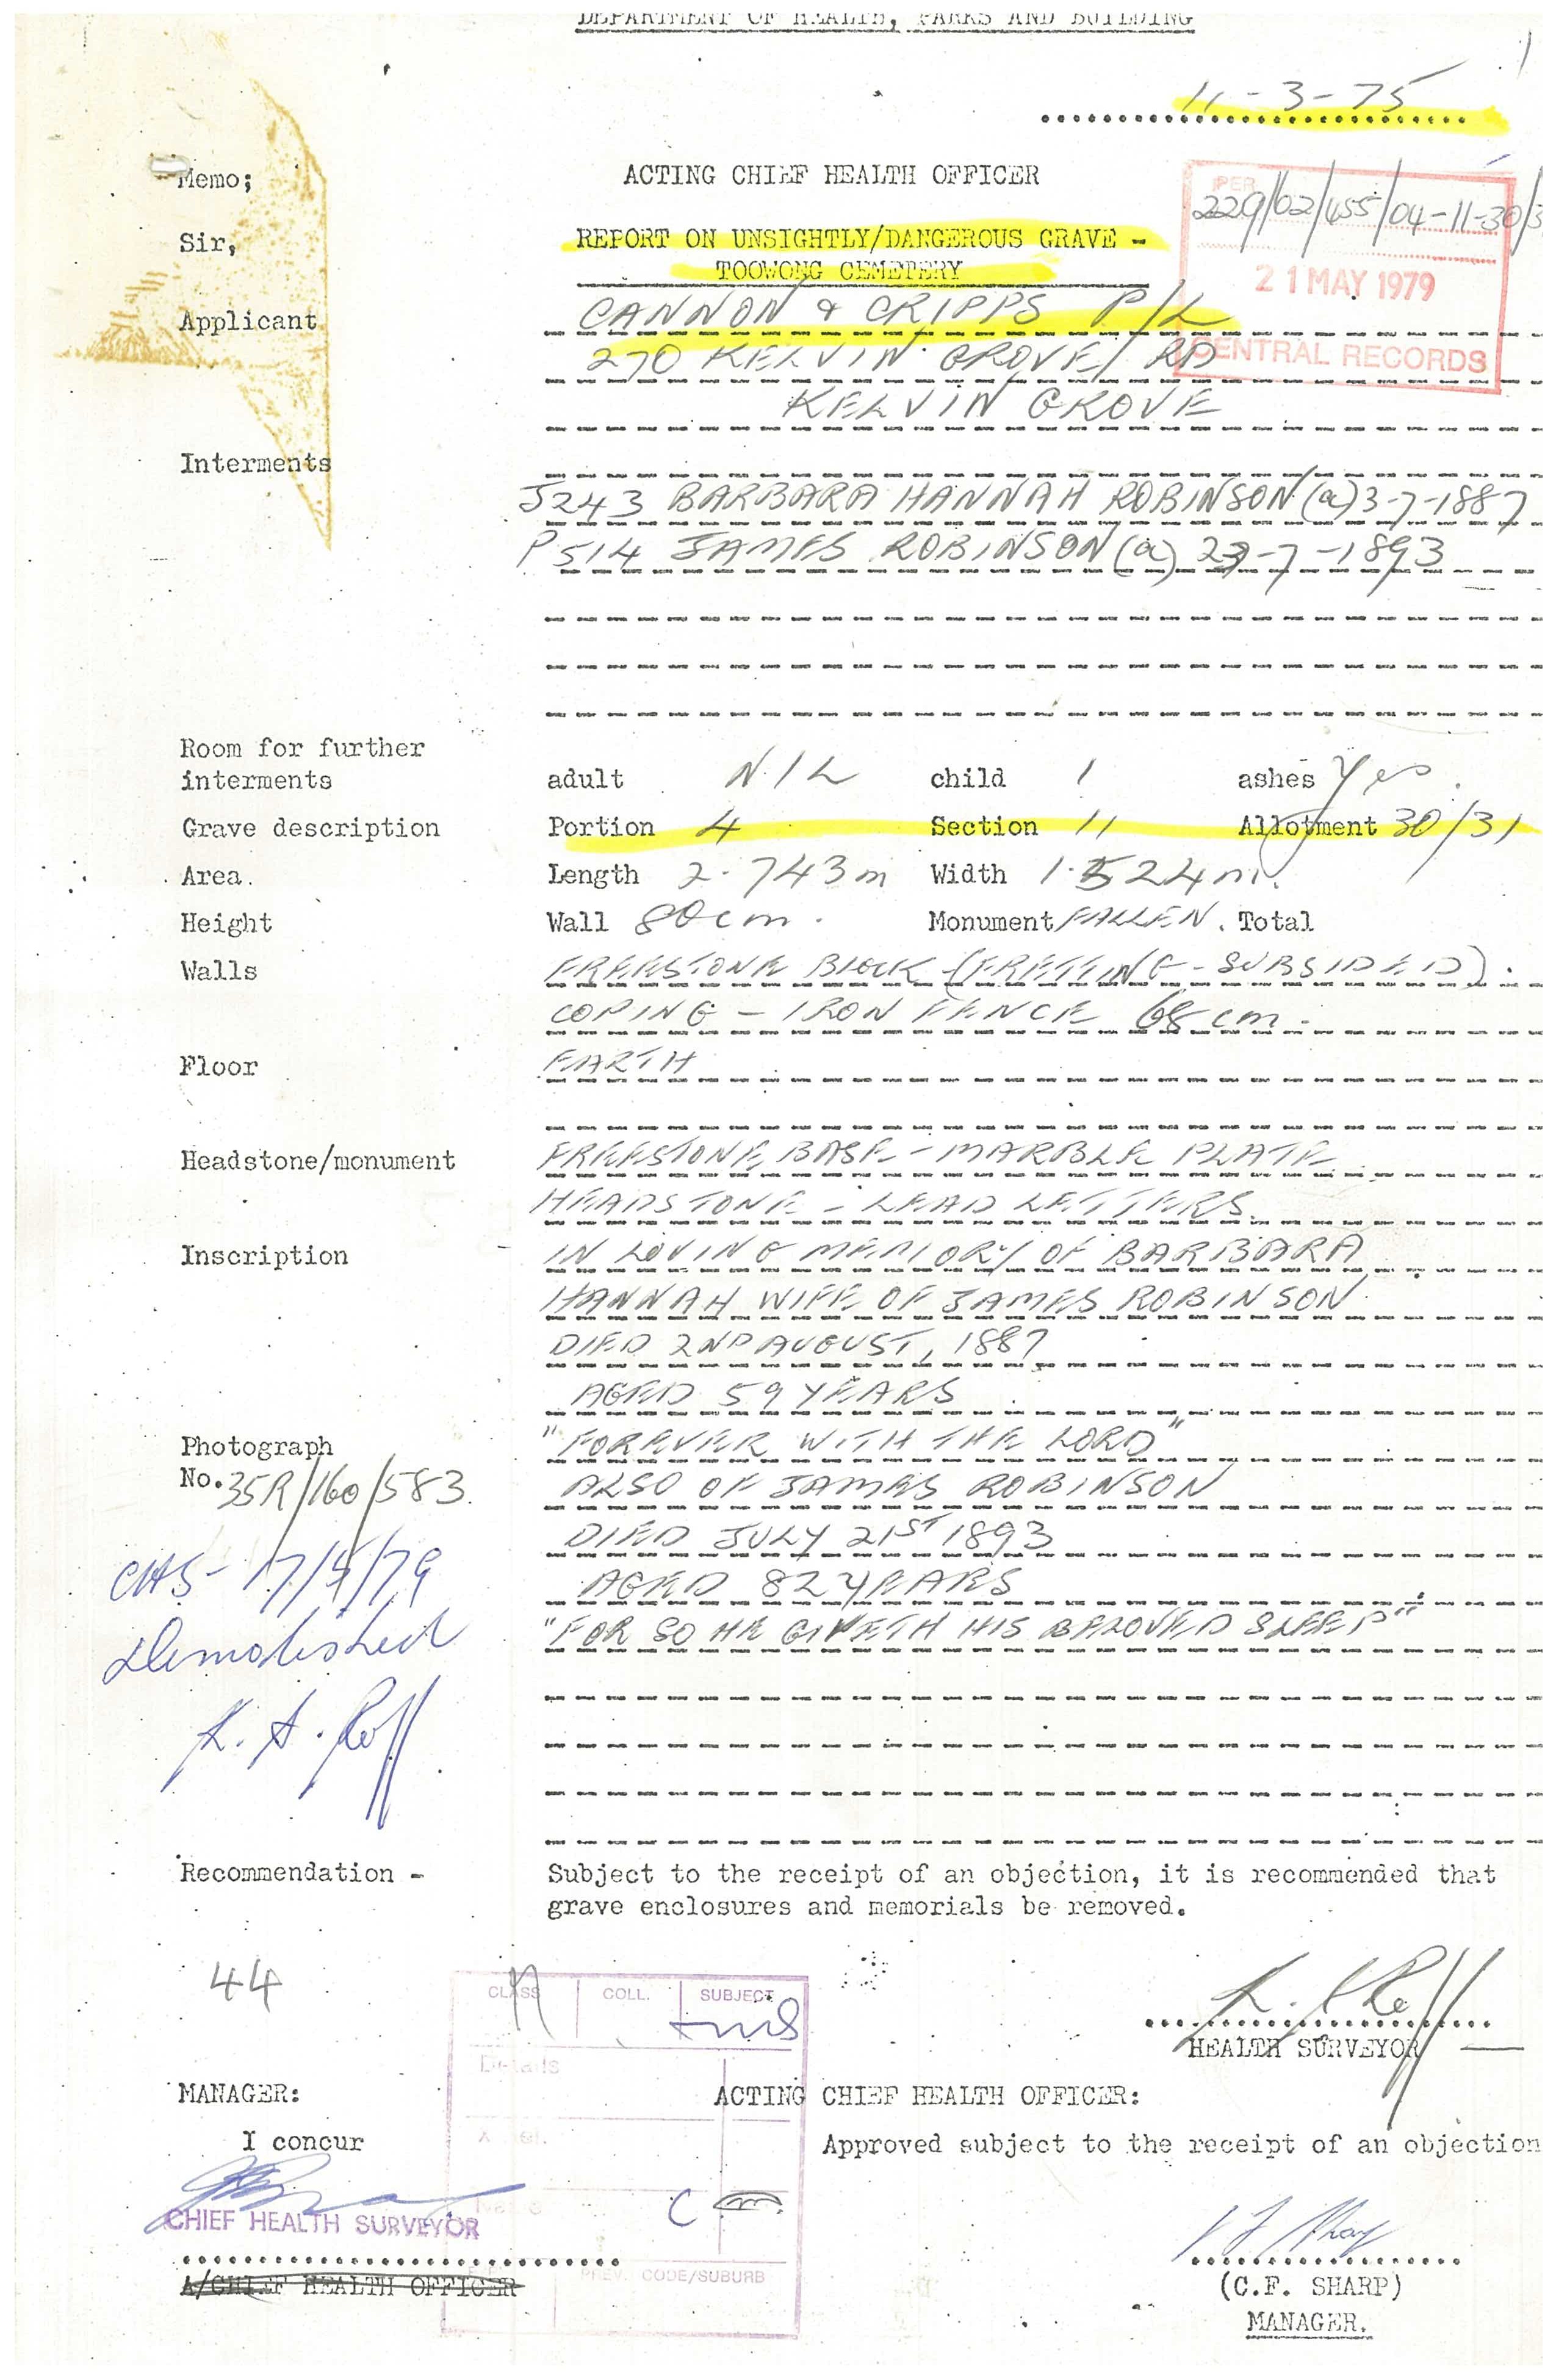 DEPARTMENT OF HEALTH, PARKS AND BUILDING
11-3-75
Memo; ACTING CHIEF HEALTH OFFICER
PER
229/02/455/04-11-30/3
Sir, REPORT ON UNSIGHTLY/DANGEROUS GRAVE -
TOOWONG CEMETERY
21 MAY 1979
CENTRAL RECORDS
Applicant CANNON & CRIPPS P/L
270 KELVIN GROVE RD
KELVIN GROVE
Interments
J243 BARBARA HANNAH ROBINSON (a) 3-7-1887
P514 JAMES ROBINSON (a) 23-7-1893
Room for further
interments adult NIL child 1 ashes Yes.
Grave description Portion 4 Section 11 Allotment 30/31
Area. Length 2.743m Width 1.524m.
Height Wall 80cm. Monument FALLEN. Total
Walls FREESTONE BLOCK (FRETTING - SUBSIDED).
COPING - IRON FENCE 68cm.
Floor EARTH
Headstone/monument FREESTONE BASE - MARBLE PLATE
HEADSTONE - LEAD LETTERS.
Inscription IN LOVING MEMORY OF BARBARA
HANNAH WIFE OF JAMES ROBINSON
DIED 2ND AUGUST, 1887
AGED 59 YEARS
"FOREVER WITH THE LORD"
ALSO OF JAMES ROBINSON
DIED JULY 21ST 1893
AGED 82 YEARS
"FOR SO HE GIVETH HIS BELOVED SLEEP"
Photograph
No. 35R/160/583.
CHS - 17/5/79
Demolished
Recommendation - Subject to the receipt of an objection, it is recommended that
grave enclosures and memorials be removed.
44
CLASS COLL. SUBJECT
Details
HEALTH SURVEYOR
MANAGER: ACTING CHIEF HEALTH OFFICER:
I concur Approved subject to the receipt of an objection
C
CHIEF HEALTH SURVEYOR
A/CHIEF HEALTH OFFICER
PREV. CODE/SUBURB
(C.F. SHARP)
MANAGER.